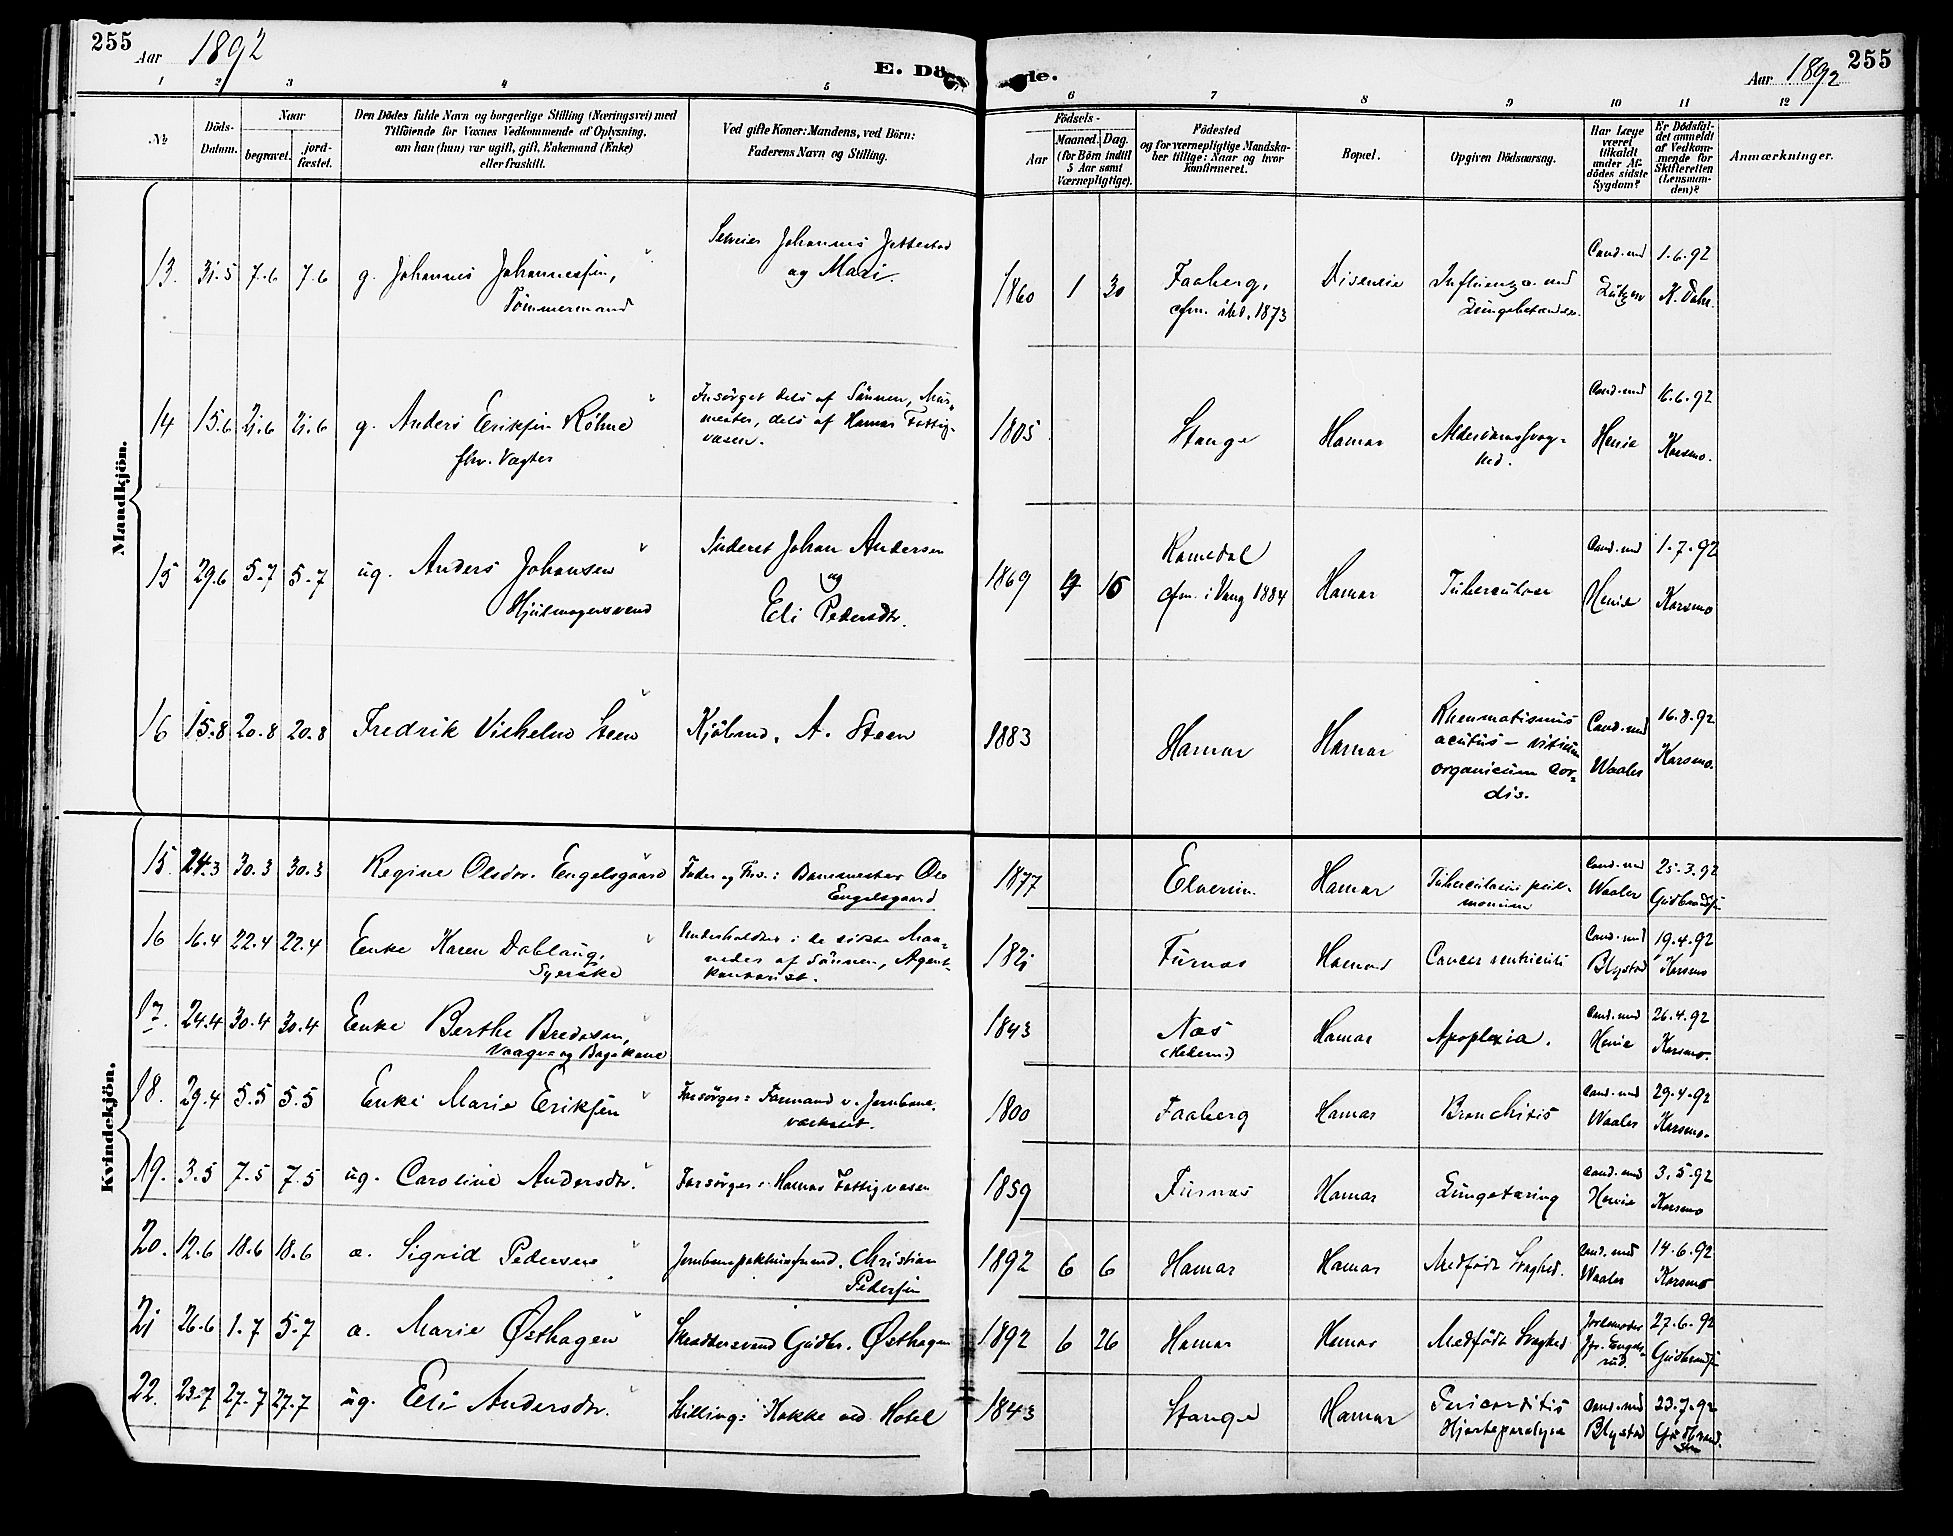 255
Aar 1892
E. Dö de.
Aar 1892
255
1 2 3 4 5 6 7 8 9 10 11 12
No
Döds-
Datum.
Naar
begravet.
jord-
fæstet.
Den Dödes fulde Navn og borgerlige Stilling (Næringsvei) med
Tilföiende for Voxnes Vedkommende af Oplysning,
om han (hun) var ugift, gift, Enkemand (Enke)
eller fraskilt.
Ved gifte Koner: Mandens, ved Börn:
Faderens Navn og Stilling.
Födsels-
Aar
Maaned. Dag.
(for Börn indtil
5 Aar samt
Værnepligtige).
Födested
og for værnepligtige Mandska-
ber tillige: Naar og hvor
Konfirmeret.
Bopæl.
Opgiven Dödsaarsag.
Har Læge
været
tilkaldt
under Af-
dödes sidste
Sygdom?
Er Dödsfal-
det anmeldt
af Vedkom-
mende for
Skifteretten
(Lensman-
den)?
Anmærkninger.
Mandkjön.
13. 31.5 7.6 7.6 g. Johannes Johannessen,
Tømmermand
Selveier Johannes Jettestad
og Mari.
1860 1 30 Faaberg,
cfm. ibd. 1873
Diseneie
Influenza med
Lungebetændelse.
Cand. med
Lützow
1.6.92
K. Dahl.
14 15.6 21.6 21.6 g. Anders Eriksen Röhne
fhv. Vægter
Forsørget dels af Sønnen, Mur-
mester, dels af Hamar Fattig-
væsen.
1805 Stange Hamar Alderdomssvag-
hed.
Cand. med
Henie
16.6.92
Korsmo.
15 29.6 5.7 5.7 ug. Anders Johansen
Hjulmagersvend
Inderst Johan Andersen
og
Eli Pedersdtr.
1869 15 Romedal
cfm. i Vang 1884
Hamar Tuberculose
Cand. med
Henie
1.7.92
Korsmo
16 15.8 20.8 20.8 Fredrik Vilhelm Steen
Kjøbmd. A. Steen
1883 Hamar Hamar
Rheumatismus
acutus - vitium
organicum cor-
dis.
Cand. med
Waaler
16.8.92
Korsmo.
Kvindekjön.
15. 24.3 30.3 30.3 Regine Olsdtr. Engelsgaard
Fader og Fors.: Banemester Ole
Engelsgaard
1877 Elverum Hamar Tuberculosis pul-
monum
Cand. med
Waaler
25.3.92
Gudbrandsen
16 16.4 22.4 22.4 Enke Karen Dablaug,
Syerske
Underholdtes i de sidste Maa-
neder af Sønnen, Agent-
kontorist.
1821 Furnæs Hamar Cancer ventriculi
Cand. med
Blystad
19.4.92
Korsmo
17. 24.4 30.4 30.4 Enke Berthe Bredesen,
Vaage og Bagekone
1843 Næs
(Hedem.)
Hamar Apoplexia.
Cand. med
Henie
26.4.92
Korsmo.
18. 29.4 5.5 5.5 Enke Marie Eriksen
Forsørger: Formand v. Jernbane-
værkset.
1800 Faaberg Hamar Bronchitis
Cand. med
Waaler
29.4.92
Korsmo.
19. 3.5 7.5 7.5 ug. Caroline Andersdtr.
Forsørger: Hamar Fattigvæsen
1859 Furnæs Hamar Lungetæring
Cand. med
Henie
3.5.92
Korsmo
20. 12.6 18.6 18.6 a. Sigrid Pedersen
Jernbanepakhusformd. Christian
Pedersen
1892 6 6 Hamar Hamar Medfødt Svaghed.
Cand. med
Waaler
14.6.92
Korsmo
21 26.6 1.7 5.7 a. Marie Østhagen
Skræddersvend Gudbr. Østhagen
1892 6 26 Hamar Hamar Medfødt Svaghed
Jordemoder
Jfr. Engels-
rud.
27.6.92
Gudbrandsen
22. 23.7 27.7 27.7 ug. Eli Andersdtr.
Stilling: Kokke ved Hotel
1843 Stange Hamar Pericarditis
Hjerteparalyse
Cand. med
Blystad
23.7.92
Gudbrand-
sen